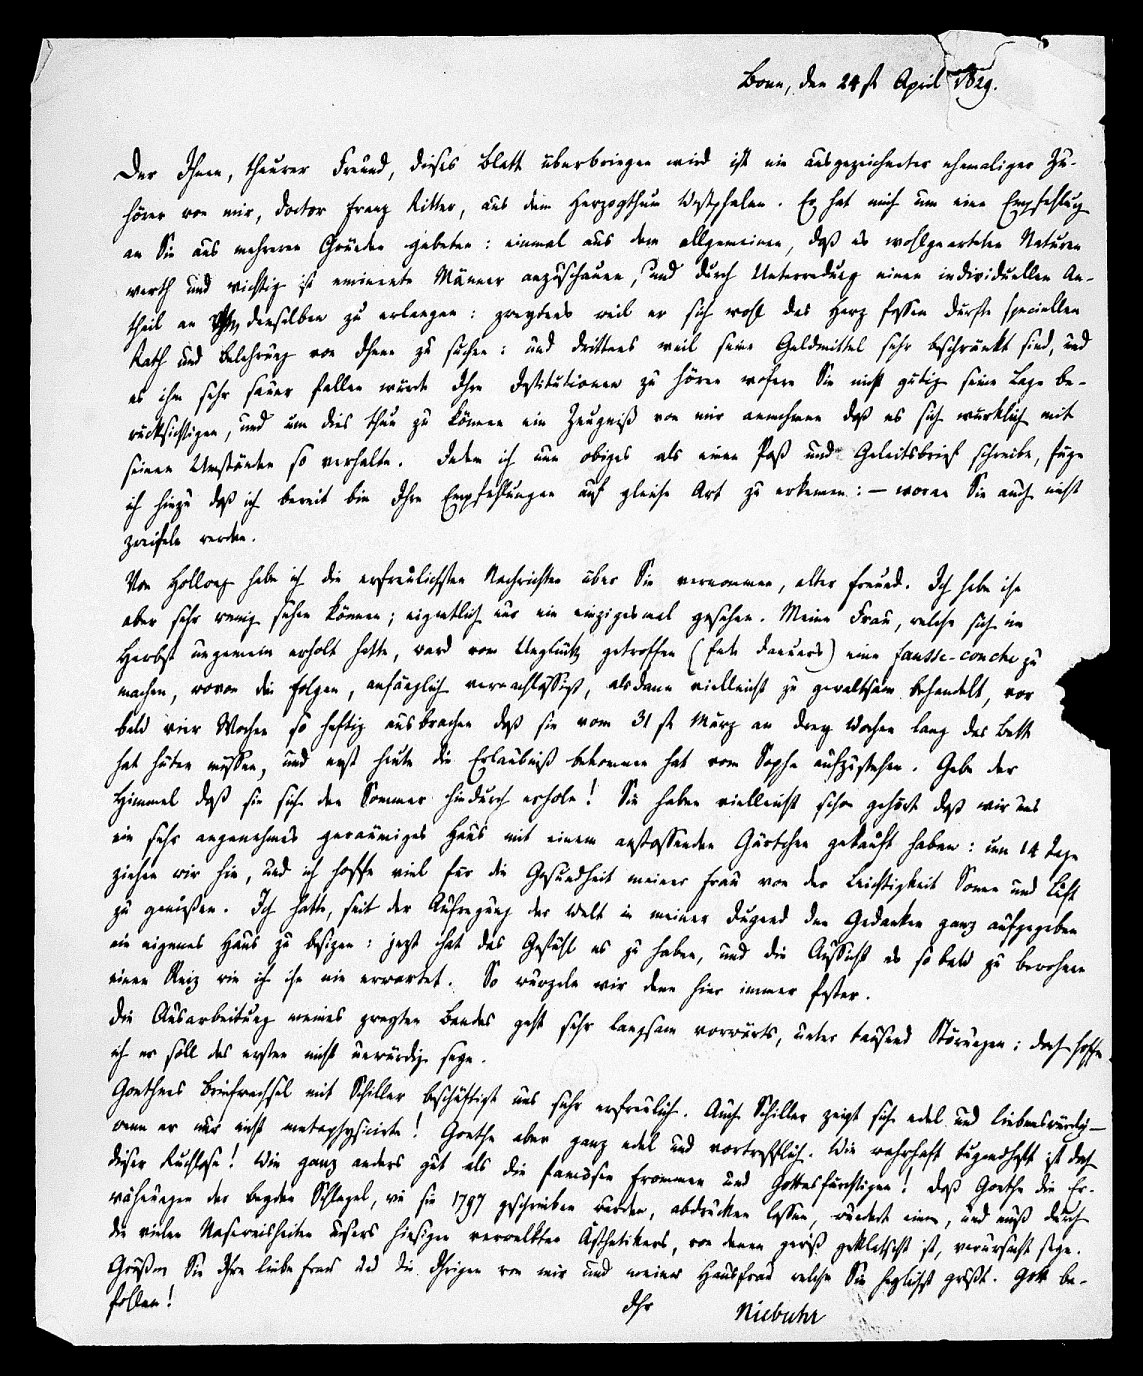 Bonn, den 24st April 1829.
Der Ihnen, theurer Freund, dieses Blatt überbringen wird ist ein ausgezeichneter ehemaliger Zu-
hörer von mir, Doctor Franz Ritter, aus dem Herzogthum Westphalen. Er hat mich um eine Empfehlung
an Sie aus mehreren Gründen gebeten: einmal aus dem allgemeinen, daß es wohlgearteten Naturen
werth und wichtig ist eminente Männer anzuschauen, und durch Unterredung einen individuellen An-
theil an denselben zu erlangen: zweytens weil er sich wohl das Herz fassen dürfte speciellen
Rath und Belehrung von Ihnen zu suchen: und drittens weil seine Geldmittel sehr beschränkt sind, und
es ihm sehr sauer fallen würde Ihre Institutionen zu hören wofern Sie nicht gütig seine Lage be-
rücksichtigen, und um dies thun zu können ein Zeugniß von mir annehmen daß es sich würklich mit
seinen Umständen so verhalte. Indem ich nun obiges als einen Paß und Geleitsbrief schreibe, füge
ich hinzu daß ich bereit bin Ihre Empfehlungen auf gleiche Art zu erkennen: — woran Sie auch nicht
zweifeln werden.
Von Hollweg habe ich die erfreulichsten Nachrichten über Sie vernommen, alter Freund. Ich habe ihn
aber sehr wenig sehen können; eigentlich nur ein einzigesmal gesehen. Meine Frau, welche sich im
Herbst ungemein erholt hatte, ward vom Unglück getroffen (Ende Januars) eine fausse-couche zu
machen, wovon die Folgen, anfänglich vernachlässigt, alsdann vielleicht zu gewaltsam behandelt, vor
bald vier Wochen so heftig ausbrachen daß sie vom 31st März an drey Wochen lang das Bett
hat hüten müssen, und erst heute die Erlaubniß bekommen hat vom Sopha aufzustehen. Gebe der
Himmel daß sie sich den Sommer hindurch erhole! Sie haben vielleicht schon gehört daß wir uns
ein sehr angenehmes geräumiges Haus mit einem anstossenden Gärtchen gekauft haben: in 14 Tagen
ziehen wir hin, und ich hoffe viel für die Gesundheit meiner Frau von der Leichtigkeit Sonne und Luft
zu genießen. Ich hatte, seit der Aufregung der Welt in meiner Jugend den Gedanken ganz aufgegeben
ein eigenes Haus zu besizen: jezt hat das Gefühl es zu haben, und die Aussicht es so bald zu bewohnen
einen Reiz wie ich ihn nie erwartet. So wurzeln wir denn hier immer fester.
Die Ausarbeitung meines zweyten Bandes geht sehr langsam vorwärts, unter tausend Störungen: doch hoffe
ich er soll des ersten nicht unwürdig seyn.
Goethes Briefwechsel mit Schiller beschäftigt uns sehr erfreulich. Auch Schiller zeigt sich edel und liebenswürdig—
wenn er nur nicht metaphysicirte! Goethe aber ganz edel und vortrefflich. Wie wahrhaft tugendhaft ist doch
dieser Ruchlose! Wie ganz anders gut als die famosen Frommen und Gottesfürchtigen! Daß Goethe die Er-
wähnungen der beyden Schlegel, wie sie 1797 geschrieben wurden, abdrucken lassen, wundert einen, und muß durch
die vielen Naseweisheiten unsers hiesigen verwelkten Ästhetikers, von denen gewiß geklatscht ist, verursacht seyn.
Grüßen Sie Ihre liebe Frau und die Ihrigen von mir und meiner Hausfrau welche Sie herzlichst grüßt. Gott be-
fohlen!
Ihr Niebuhr